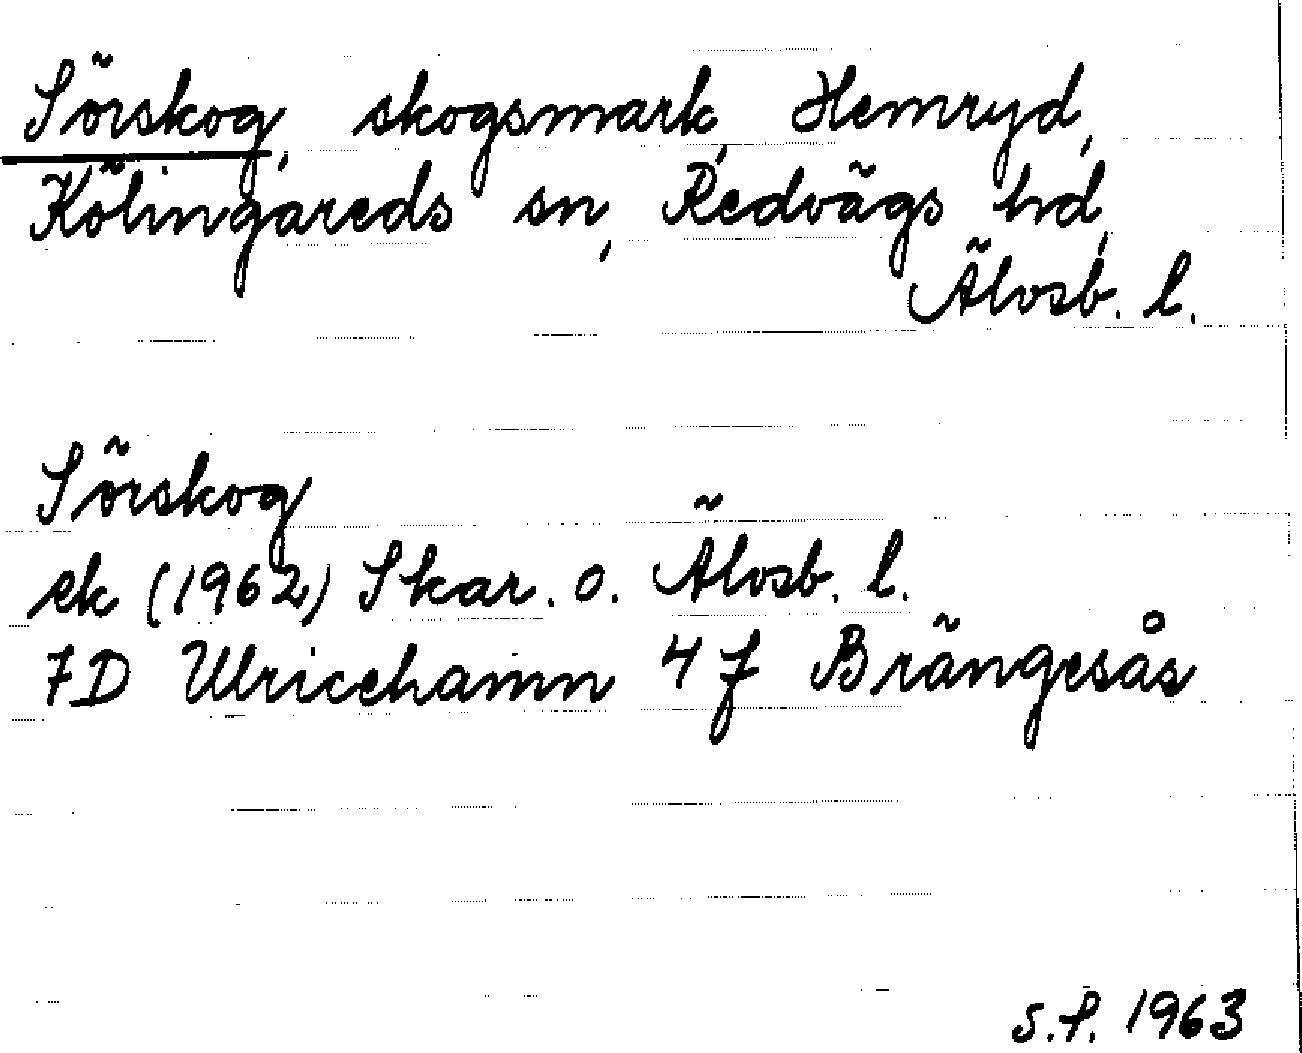 Sörskog, skogsmark, Hemryd,
Kölingareds sn, Redvägs hd,
Älvsb. l.
Sörskog
ek (1962) Skar. o. Älvsb. l.
7D Ulricehamn 4f Brängesås
S.P. 1963